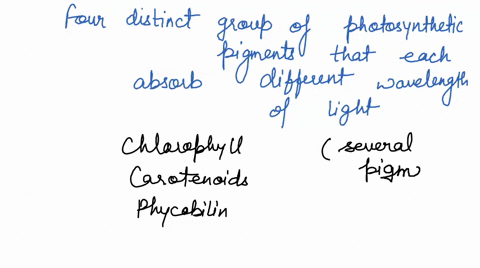 four distinct group of photosynthetic
pigments that each
absorb different wavelength
of light
Chlorophyll (several
Carotenoids pigm
Phycobilin